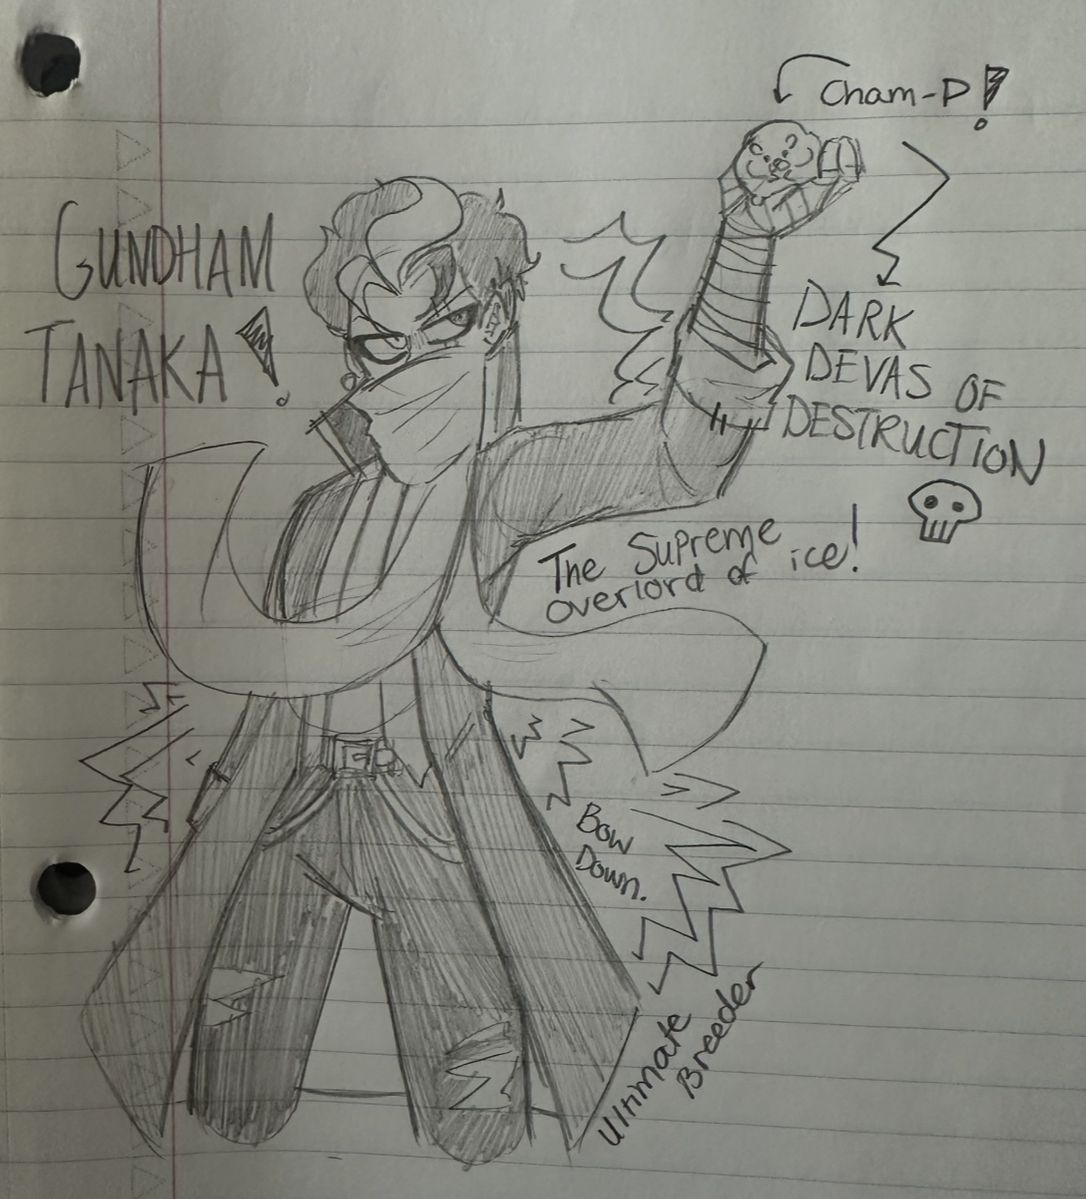 Cham-P!
GUNDHAM
TANAKA!
DARK
DEVAS OF
DESTRUCTION
The Supreme
overlord of ice!
Bow
Down.
Ultimate
Breeder